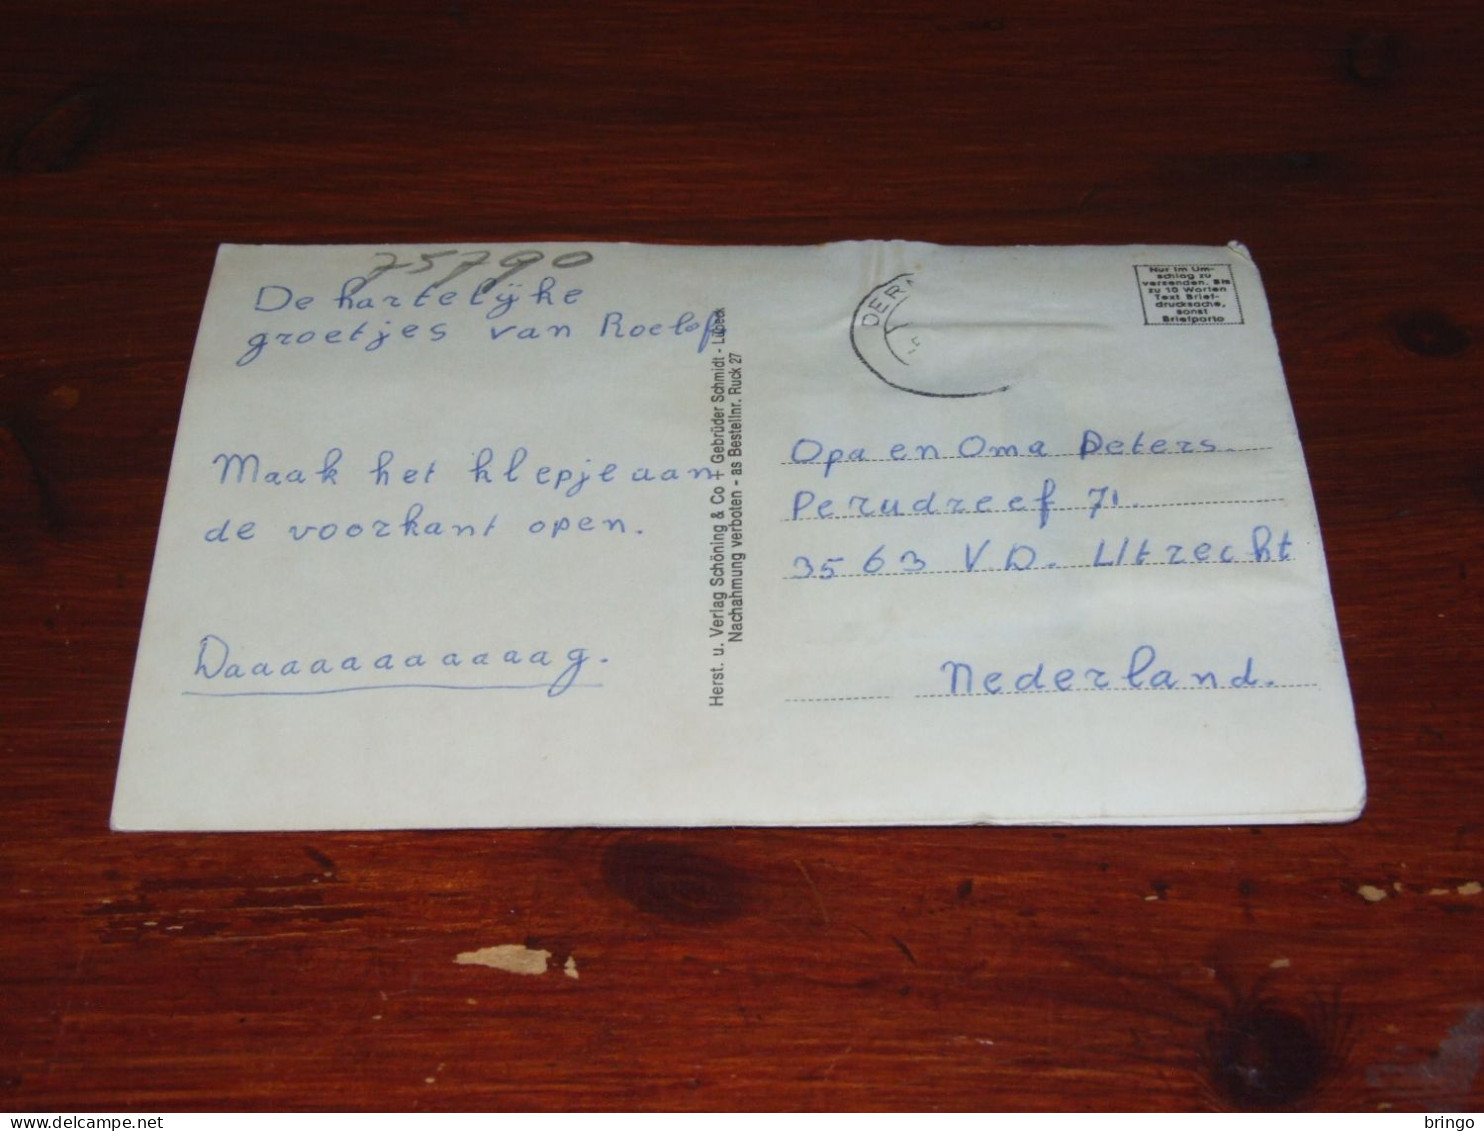 75790
De hartelijke
groetjes van Roelof
Maak het klepje aan
de voorkant open.
Daaaaaaaaaaaag.
Herst. u. Verlag Schöning & Co + Gebrüder Schmidt - Lübeck
Nachahmung verboten - as Bestellnr. Ruck 27
DER
Nur im Um-
schlag zu
versenden. Bis
zu 10 Worten
Text Brief-
drucksache,
sonst
Briefporto
Opa en Oma Peters.
Perudreef 71.
3563 V.D. Utrecht
Nederland.
www.delcampe.net
bringo